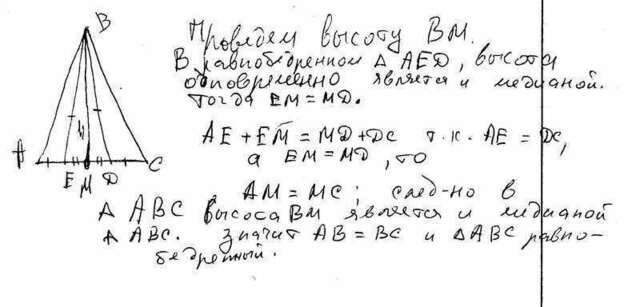 B
A E M D C
Проведём высоту BM.
В равнобедренном △ AED, высота
одновременно является и медианой.
Тогда EM = MD.
AE + EM = MD + DC т.к. AE = DC,
а EM = MD, то
AM = MC; след-но в
△ ABC высоса BM является и медианой
△ ABC. значит AB = BC и △ABC равно-
бедренный.